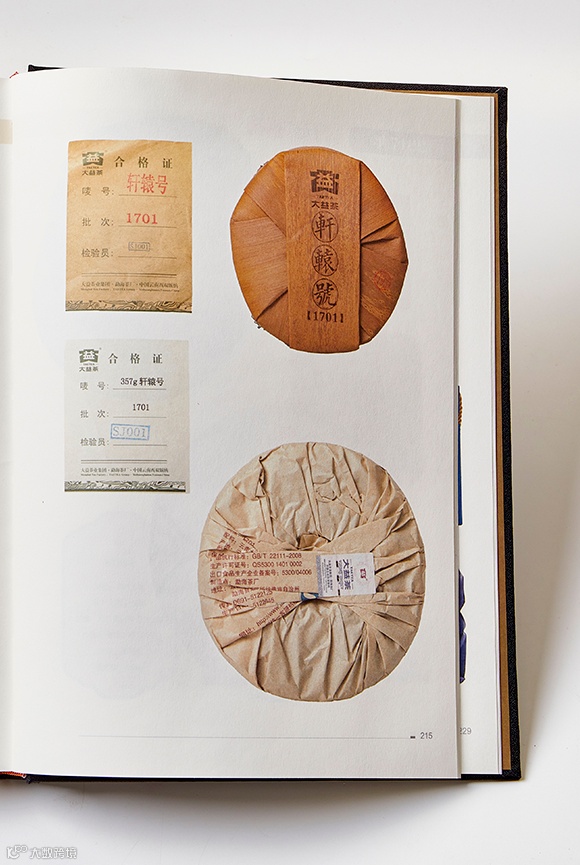 益
大益茶
合格证
唛 号：
轩辕号
批 次：
1701
检验员：
SJ001
大益茶业集团·勐海茶厂·中国云南西双版纳
益
大益茶
軒
轅
號
【1701】
益
大益茶
合格证
唛 号：
357g 轩辕号
批 次：
1701
检验员：
SJ001
大益茶业集团·勐海茶厂·中国云南西双版纳
GB/T 22111-2008
生产许可证号：QS5300 1401 0002
出口食品生产企业备案号：5300/04006
勐海茶厂
大益茶
215
229
大数跨境